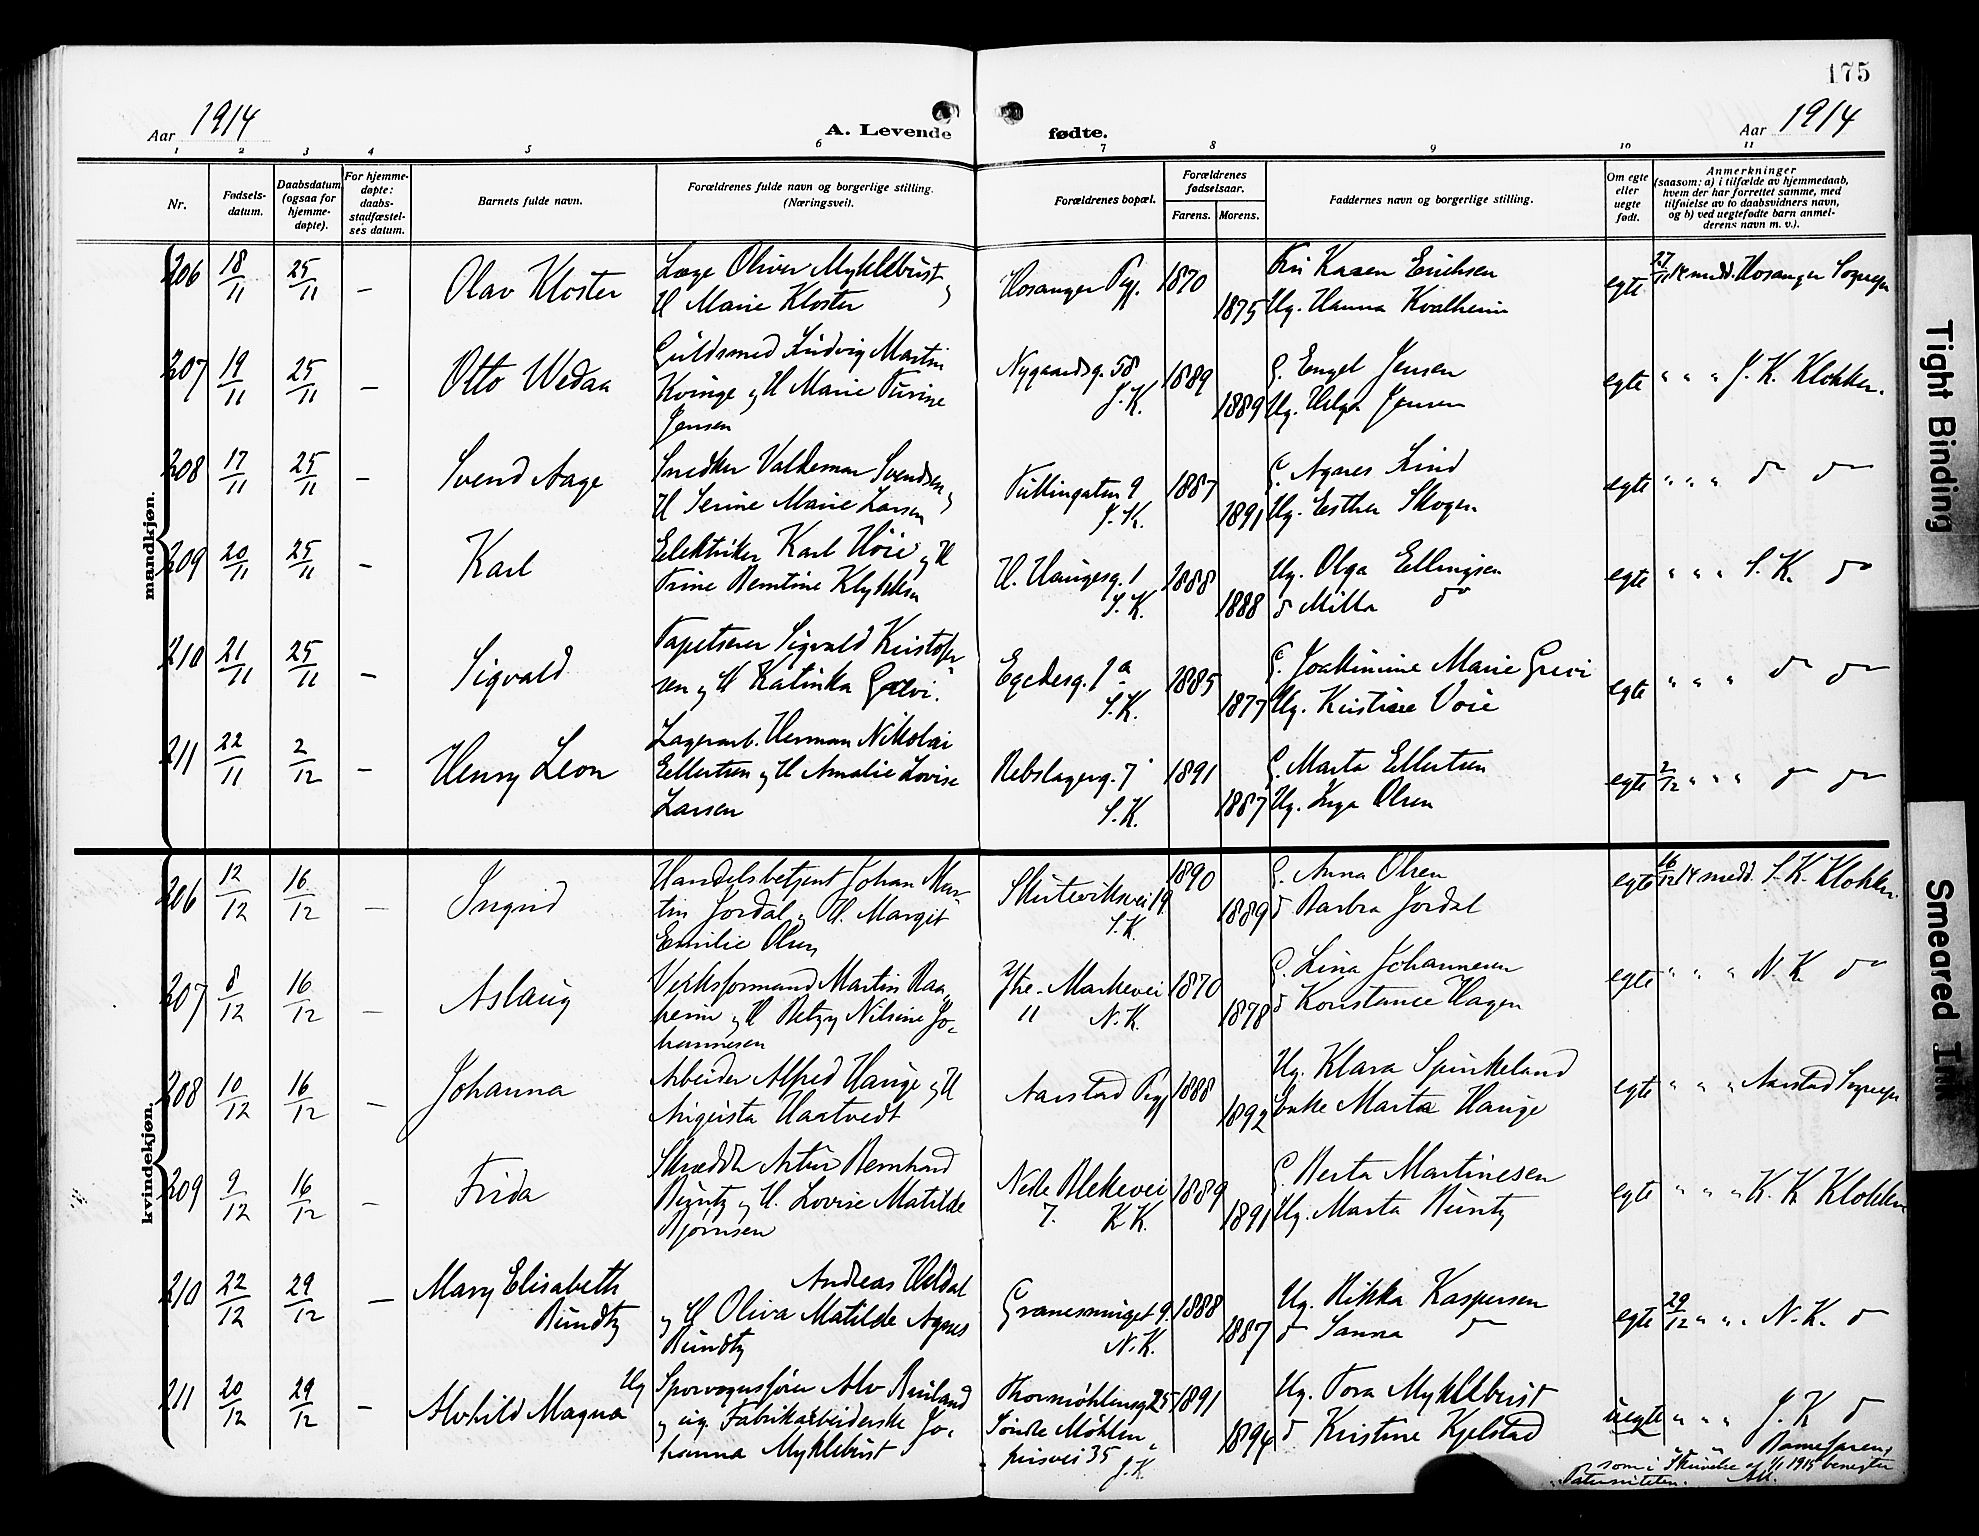 175
Aar 1914
A. Levende fødte.
Aar 1914
1 2 3 4 5 6 7 8 9 10 11
Nr.
Fødsels-
datum.
Daabsdatum
(ogsaa for
hjemme-
døpte).
For hjemme-
døpte:
daabs-
stadfæstel-
ses datum.
Barnets fulde navn.
Forældrenes fulde navn og borgerlige stilling.
(Næringsvei).
Forældrenes bopæl.
Forældrenes
fødselsaar.
Farens. Morens.
Faddernes navn og borgerlige stilling.
Om egte
eller
uegte
født.
Anmerkninger
(saasom: a) i tilfælde av hjemmedaab,
hvem der har forrettet samme, med
tilføielse av to daabsvidners navn,
og b) ved uegtefødte barn anmel-
derens navn m. v.).
mandkjøn.
206 18/11 25/11 — Olav Kloster
Læge Oliver Myklebust
H Marie Kloster
Hosanger Pgj. 1870 1875
Fru Karen Erichsen
Ug. Hanna Kvalheim
egte 27/11 medd. Hosanger Sogrepr
207 19/11 25/11 — Otto Wedaa
Guldsmed Ludvig Martin
Kvinge og H Marie Turine
Jensen
Nygaardsg. 58
J.K.
1889 1889
G. Engel Jensen
Ug. Helga Jensen
egte " " " J. K. Klokker.
208 17/11 25/11 — Svend Aage
Snedker Valdemar Svendsen
H Serine Marie Larsen
Tullingaten 9
J.K.
1887 1891
G. Agnes Lind
Ug. Esther Skogen
egte " " " do do
209 20/11 25/11 — Karl
Elektriker Karl Høie og H
Trine Berntine
H. Haugesg. 1
S.K.
1888 1888
Ug. Olga Ellingsen
do Milla do
egte " " " S. K. do
210 21/11 25/11 — Sigvald
Tapetserer Sigvald Kristofer-
sen og H Katinka Grevi.
Egedesg. 1a
S.K.
1885 1877
G. Joakimine Marie Grevi
Ug. Kristine Voie
egte " " " do do
211 22/11 2/12 — Henry Leon
Lagerarb. Herman Nikolai
Ellertsen og H Amalie Lovise
Larsen
Rebslagerg. 7
S.K.
1891 1887
G. Marta Ellertsen
Ug. Inga Olsen
egte 2/12 " " " do do
kvindekjøn.
206 12/12 16/12 — Ingrid
Handelsbetjent Johan Mar-
tin Jordal og H. Margit
Emilie Olsen
Skuteviksvei 19
S.K.
1890 1889
G. Anna Olsen
do Barbra Jordal
egte 16/12 medd. S. K. Klokker.
207 8/12 16/12 — Aslaug
Verksformand Martin Raa-
heim og H Betzy Nilsine Jo-
hannesen
Ytre-Markevei
11 N.K.
1870 1878
G. Lina Johannesen
do Konstance Hagen
egte " " " N. K. do
208 10/12 16/12 — Johanna
Arbeider Alfred Hauge og H
Augusta Haatvedt
Aarstad Pgj
1888 1892
Ug. Klara Spinkeland
Enke Marta Hauge
egte " " " Aarstad Sogrepr
209 9/12 16/12 — Frida
Skrædder Artur Bernhard
Buntz og H. Lovise Matilde
Bjørnsen
Nedre Blekevei
7. K K.
1889 1891
G. Berta Martinesen
Ug. Marta Buntz
egte " " " K. K Klokker
210 22/12 29/12 — Mary Elisabeth
Bundtz
Andreas Heldal
og H Oliva Matilde Agnes
Bundtz
Granessmuget 9.
N.K.
1888 1887
Ug. Rikka Kaspersen
do Sanna do
egte 29/12 " " " N. K. do
211 20/12 29/12 — Alvhild Magna
Ug
Sporvognsfører Alv Buland
og ug. Fabrikarbeiderske Jo-
hanna Myklebust
Thormøhlensg 25
Søndre Møhlen-
prisvei 35 J.K
1891 1894
Ug. Tora Myklebust
do Kristine Kjelstad
uegte " " " J. K do
Barnefaren
som i Skrivelse af 1/1 1915 benegter
Paterniteten. AH.
Tight Binding
Smeared Ink